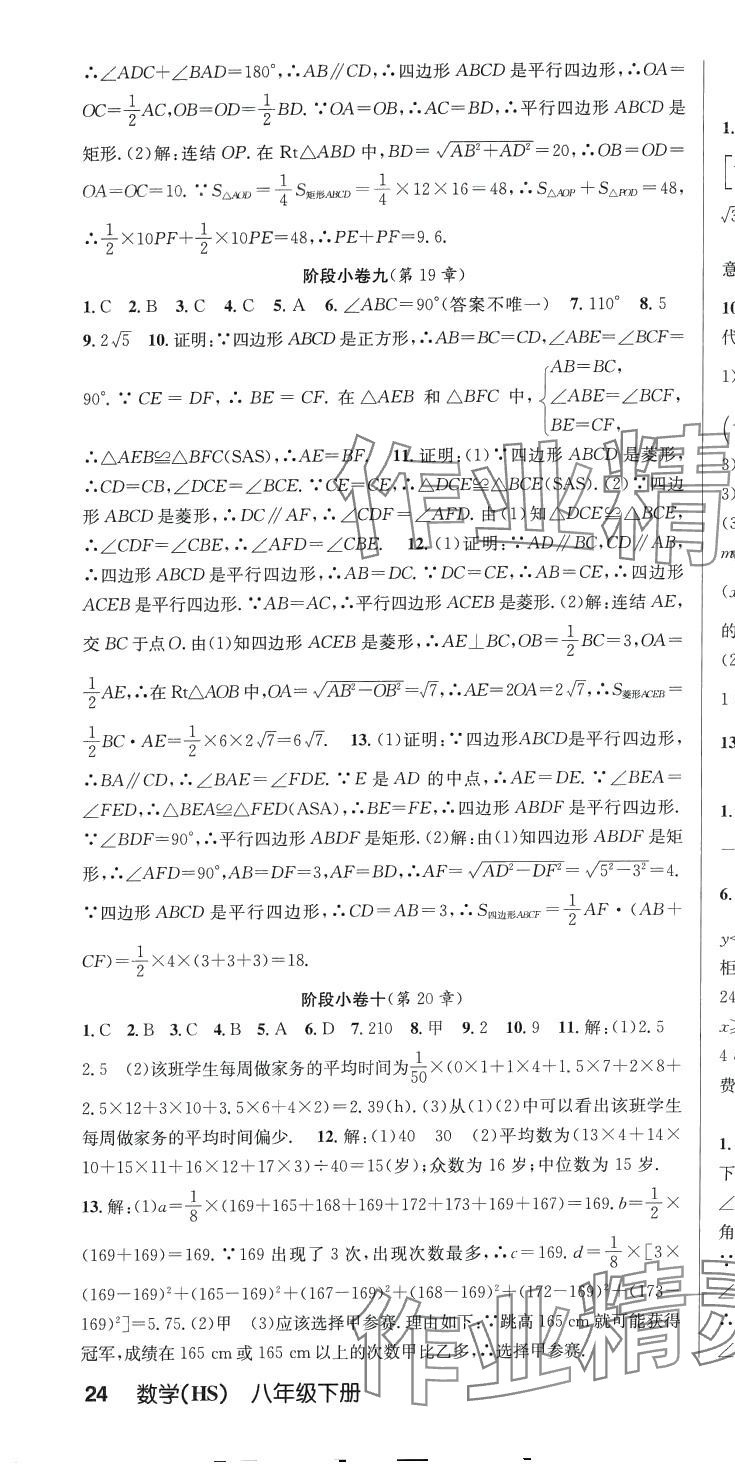 ∴∠ADC+∠BAD=180°,∴AB∥CD,∴四边形 ABCD 是平行四边形,∴OA=
OC=1/2AC,OB=OD=1/2BD.∵OA=OB,∴AC=BD,∴平行四边形 ABCD 是
矩形.(2)解:连结 OP.在 Rt△ABD 中,BD=√(AB²+AD²)=20,∴OB=OD=
OA=OC=10.∵S△AOD=1/4S矩形ABCD=1/4×12×16=48,∴S△AOP+S△POD=48,
∴1/2×10PF+1/2×10PE=48,∴PE+PF=9.6.
阶段小卷九(第 19 章)
1.C 2.B 3.C 4.C 5.A 6.∠ABC=90°(答案不唯一) 7.110° 8.5
9.2√5 10.证明:∵四边形 ABCD 是正方形,∴AB=BC=CD,∠ABE=∠BCF=
90°.∵CE=DF,∴BE=CF.在△AEB 和△BFC 中,{AB=BC,
∠ABE=∠BCF,
BE=CF,
∴△AEB≌△BFC(SAS),∴AE=BF. 11.证明:(1)∵四边形 ABCD 是菱形,
∴CD=CB,∠DCE=∠BCE.∵CE=CE,∴△DCE≌△BCE(SAS).(2)∵四边
形 ABCD 是菱形,∴DC∥AF,∴∠CDF=∠AFD.由(1)知△DCE≌△BCE,
∴∠CDF=∠CBE,∴∠AFD=∠CBE. 12.(1)证明:∵AD∥BC,CD∥AB,
∴四边形 ABCD 是平行四边形,∴AB=DC.∵DC=CE,∴AB=CE,∴四边形
ACEB 是平行四边形.∵AB=AC,∴平行四边形 ACEB 是菱形.(2)解:连结 AE,
交 BC 于点O.由(1)知四边形 ACEB 是菱形,∴AE⊥BC,OB=1/2BC=3,OA=
1/2AE,∴在 Rt△AOB中,OA=√(AB²−OB²)=√7,∴AE=2OA=2√7,∴S菱形ACEB=
1/2BC·AE=1/2×6×2√7=6√7. 13.(1)证明:∵四边形ABCD是平行四边形,
∴BA∥CD,∴∠BAE=∠FDE.∵E 是 AD 的中点,∴AE=DE.∵∠BEA=
∠FED,∴△BEA≌△FED(ASA),∴BE=FE,∴四边形 ABDF 是平行四边形.
∵∠BDF=90°,∴平行四边形 ABDF 是矩形.(2)解:由(1)知四边形 ABDF 是矩
形,∴∠AFD=90°,AB=DF=3,AF=BD,∴AF=√(AD²−DF²)=√(5²−3²)=4.
∵四边形 ABCD 是平行四边形,∴CD=AB=3,∴S四边形ABCF=1/2AF·(AB+
CF)=1/2×4×(3+3+3)=18.
阶段小卷十(第 20 章)
1.C 2.B 3.C 4.B 5.A 6.D 7.210 8.甲 9.2 10.9 11.解:(1)2.5
2.5 (2)该班学生每周做家务的平均时间为1/50×(0×1+1×4+1.5×7+2×8+
2.5×12+3×10+3.5×6+4×2)=2.39(h).(3)从(1)(2)中可以看出该班学生
每周做家务的平均时间偏少. 12.解:(1)40 30 (2)平均数为(13×4+14×
10+15×11+16×12+17×3)÷40=15(岁);众数为 16 岁;中位数为 15 岁.
13.解:(1)a=1/8×(169+165+168+169+172+173+169+167)=169.b=1/2×
(169+169)=169.∵169 出现了 3 次,出现次数最多,∴c=169.d=1/8×[3×
(169−169)²+(165−169)²+(167−169)²+(168−169)²+(172−169)²+(173−
169)²]=5.75.(2)甲 (3)应该选择甲参赛.理由如下:∵跳高 165 cm就可能获得
冠军,成绩在 165 cm或 165 cm以上的次数甲比乙多,∴选择甲参赛.
24 数学(HS) 八年级下册
作业精
作业精灵